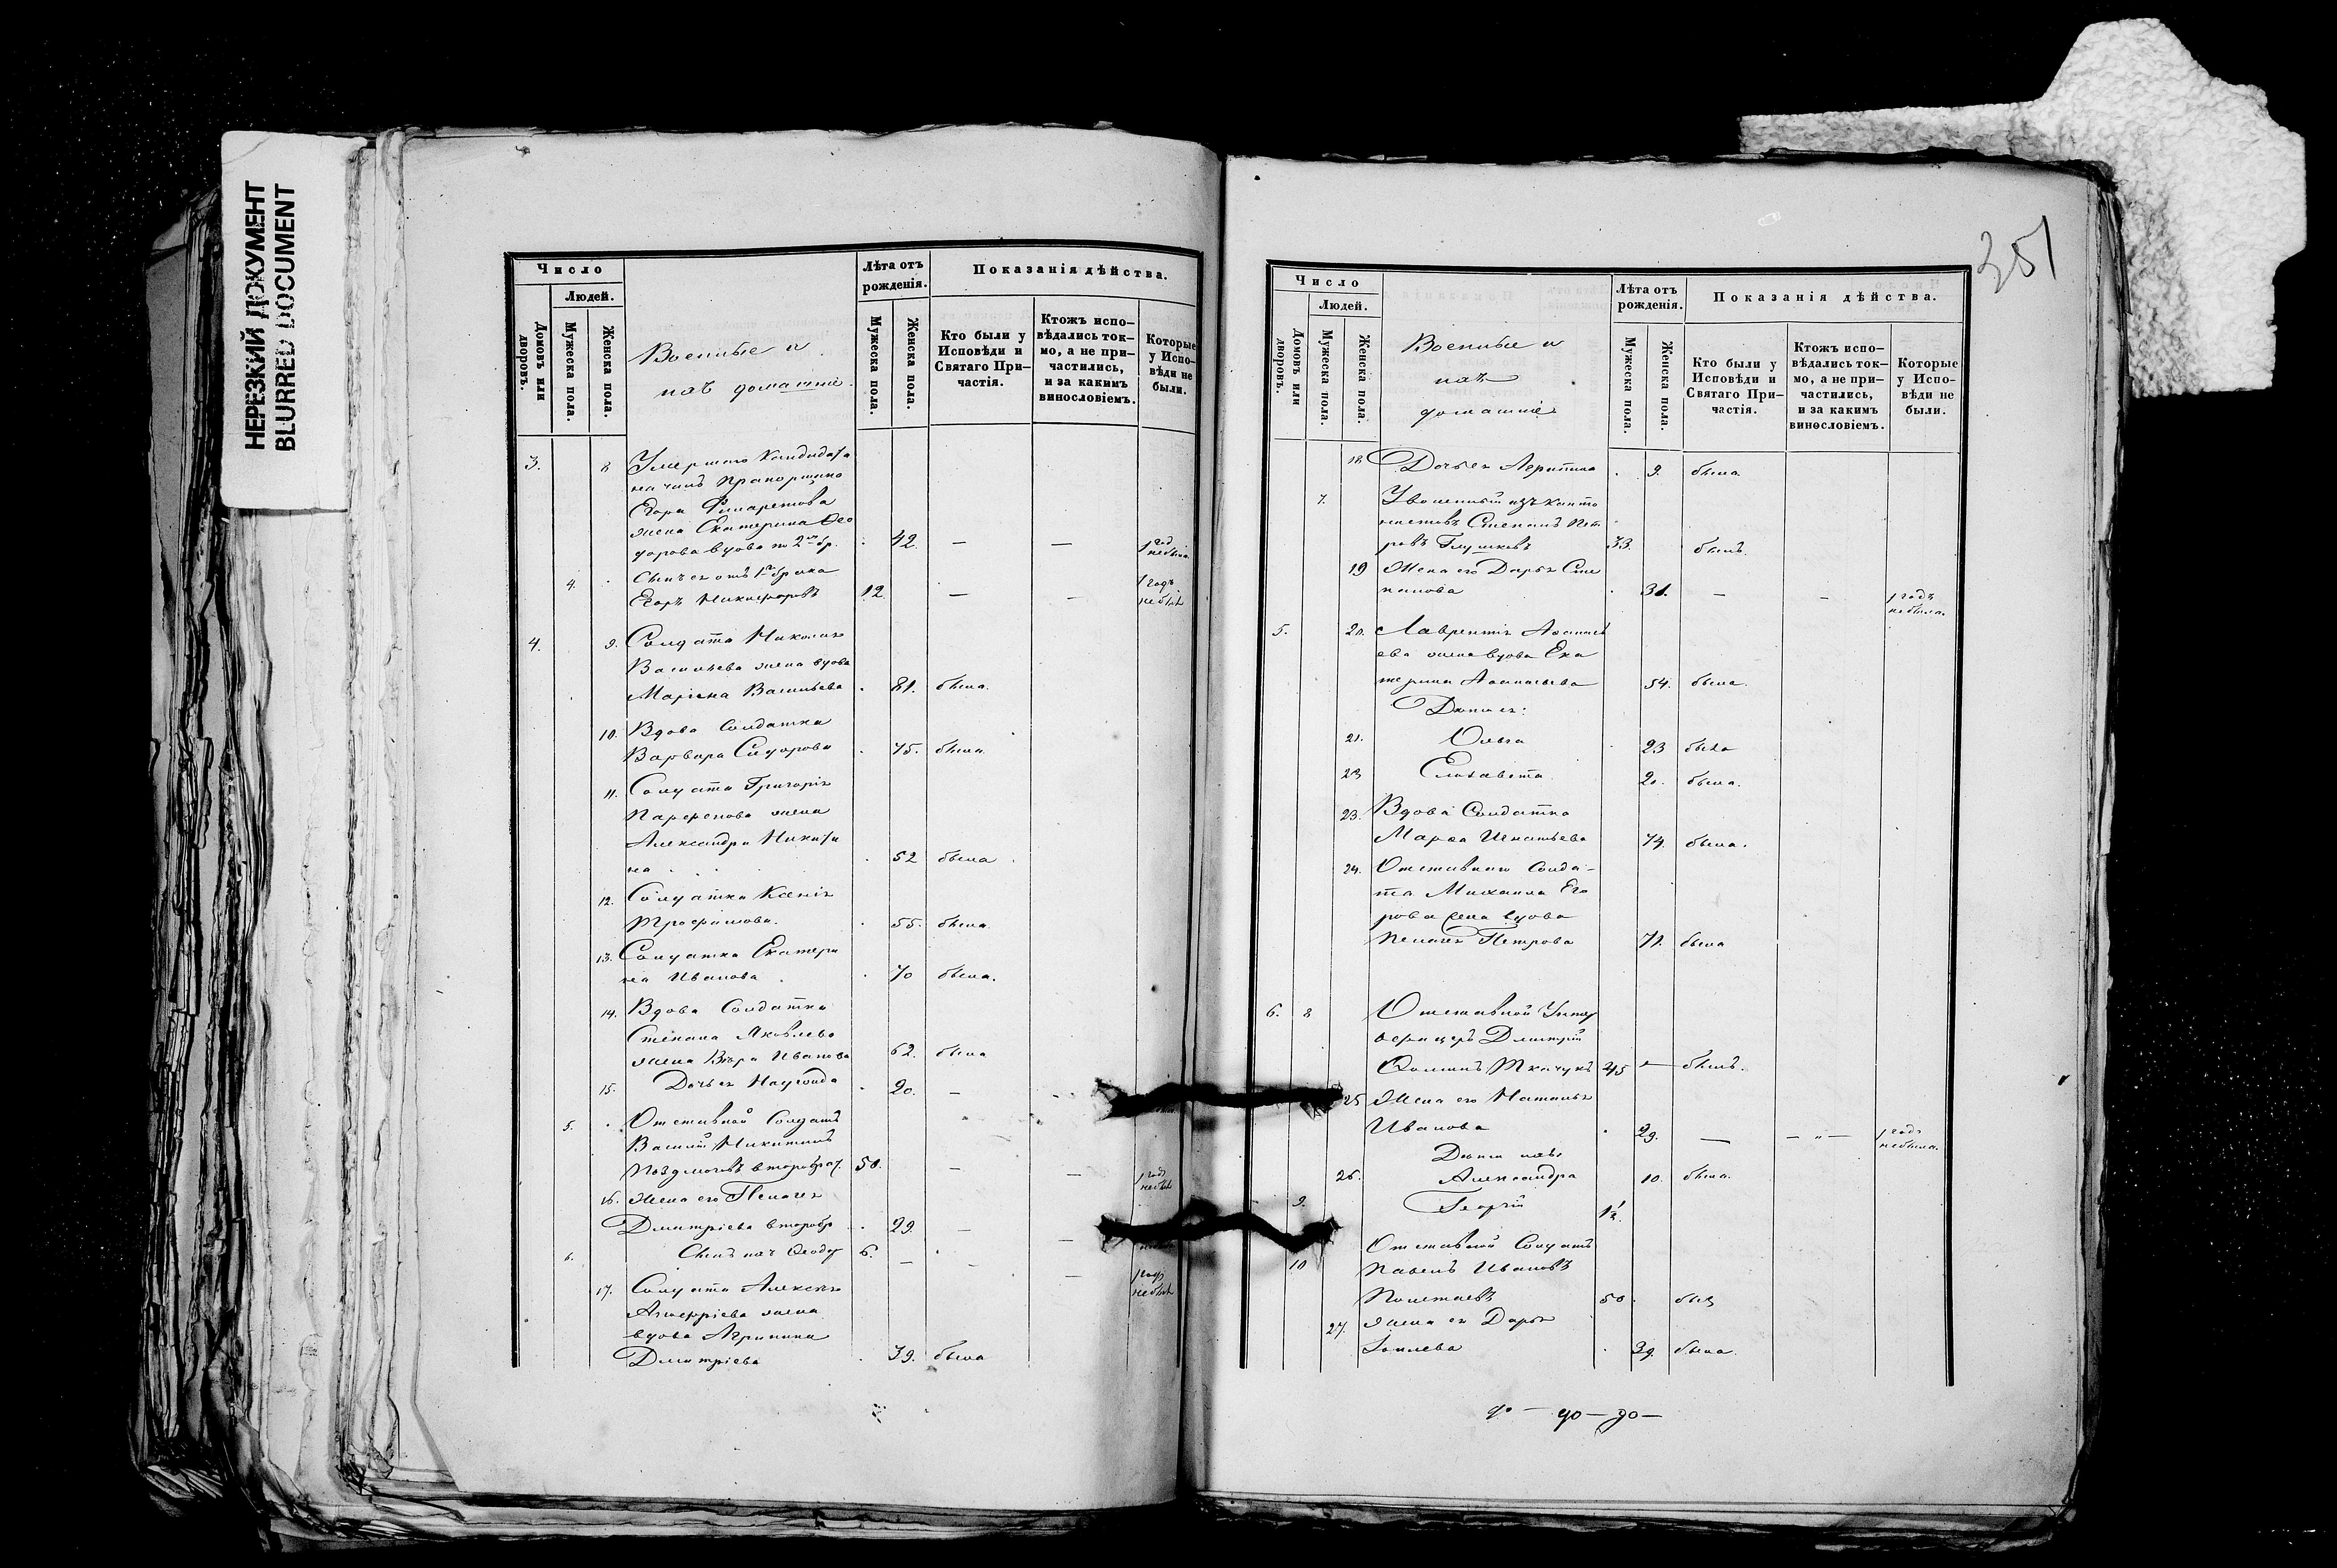 НЕРЕЗКИЙ ДОКУМЕНТ
BLURRED DOCUMENT
Число
Людей.
Домовъ или дворовъ.
Мужеска пола.
Женска пола.
Военные и
ихъ домашніе.
Лѣта отъ рожденія.
Мужеска пола.
Женска пола.
Показанія дѣйства.
Кто были у Исповѣди и Святаго При-частія.
Ктожъ испо-вѣдались ток-мо, а не при-частились, и за какимъ винословіемъ.
Которые у Испо-вѣди не были.
3. 8 Умершаго Кандидата
на чинъ Прапорщика
Егора
жена Екатерина Ѳео
дорова вдова по 2мъ бр. . 42. — — 1 год не была
4. . Сынъ ея отъ 1го брака
Егоръ Никифоровъ 12. — — 1 годъ не былъ
4. 9. Солдата Николая
Васильева жена вдова
Марѳина Васильева . 81. была.
10. Вдова Солдатка
Варвара Сидорова . 75. была.
11. Солдата Григорія
Парфенова жена
Александра Никити
на . . . . 52 была.
12. Солдатка Ксенія
Трофимова. . 55. была.
13. Солдатка Екатери
на Иванова . . 70 была.
14. Вдова Солдатка
Степана Яковлева
жена Вѣра Иванова 62. была
15. Дочь ея . 20. —
5. . Отставной Солдатъ
Василій Никитинъ
второбрач. 50. — — 1 годъ не былъ
16. Жена его Пелагея
Дмитріева второбр . 29. — —
6. Сынъ ихъ Ѳеодор 6. — — — 1 годъ не былъ
17. Солдата Алексѣя
жена
вдова Агрипина
Дмитріева . 39. была
351
Число
Людей.
Домовъ или дворовъ.
Мужеска пола.
Женска пола.
Военные и
ихъ
домашніе
Лѣта отъ рожденія.
Мужеска пола.
Женска пола.
Показанія дѣйства.
Кто были у Исповѣди и Святаго При-частія.
Ктожъ испо-вѣдались ток-мо, а не при-частились, и за какимъ винословіемъ.
Которые у Испо-вѣди не были.
18. Дочь ея . 9. была
7. Уволенный изъ канто
нистовъ Степанъ Пет
ровъ Глушковъ 33. былъ.
19 Жена его Дарья Сте
панова . 31. — — 1 годъ не была.
5. 20. Лаврентія Аѳанась
ева жена вдова Ека
терина Аѳанасьева 54. была.
Дѣти ея:
21. Ольга . 23 была
22 Елизавета 20. была.
23. Вдова Солдатка
Марѳа Игнатьева 74. была.
24. Отставнаго Солда-
та Михаила Его
рова жена вдова
Пелагея Петрова 71. была
6. 8 Отставной Унтер
офицеръ Дмитрій
Ѳоминъ Ткачукъ 45 — былъ.
25 Жена его Наталья
Иванова . 29. — — „ — 1 годъ не была.
Дѣти ихъ
26. Александра 10. была.
9. Георгій 1½
Отставной Солдатъ
10 Павелъ Ивановъ
Полетаевъ 50. былъ
27. Жена ея Дарья
. 39. была.
до — до — до —